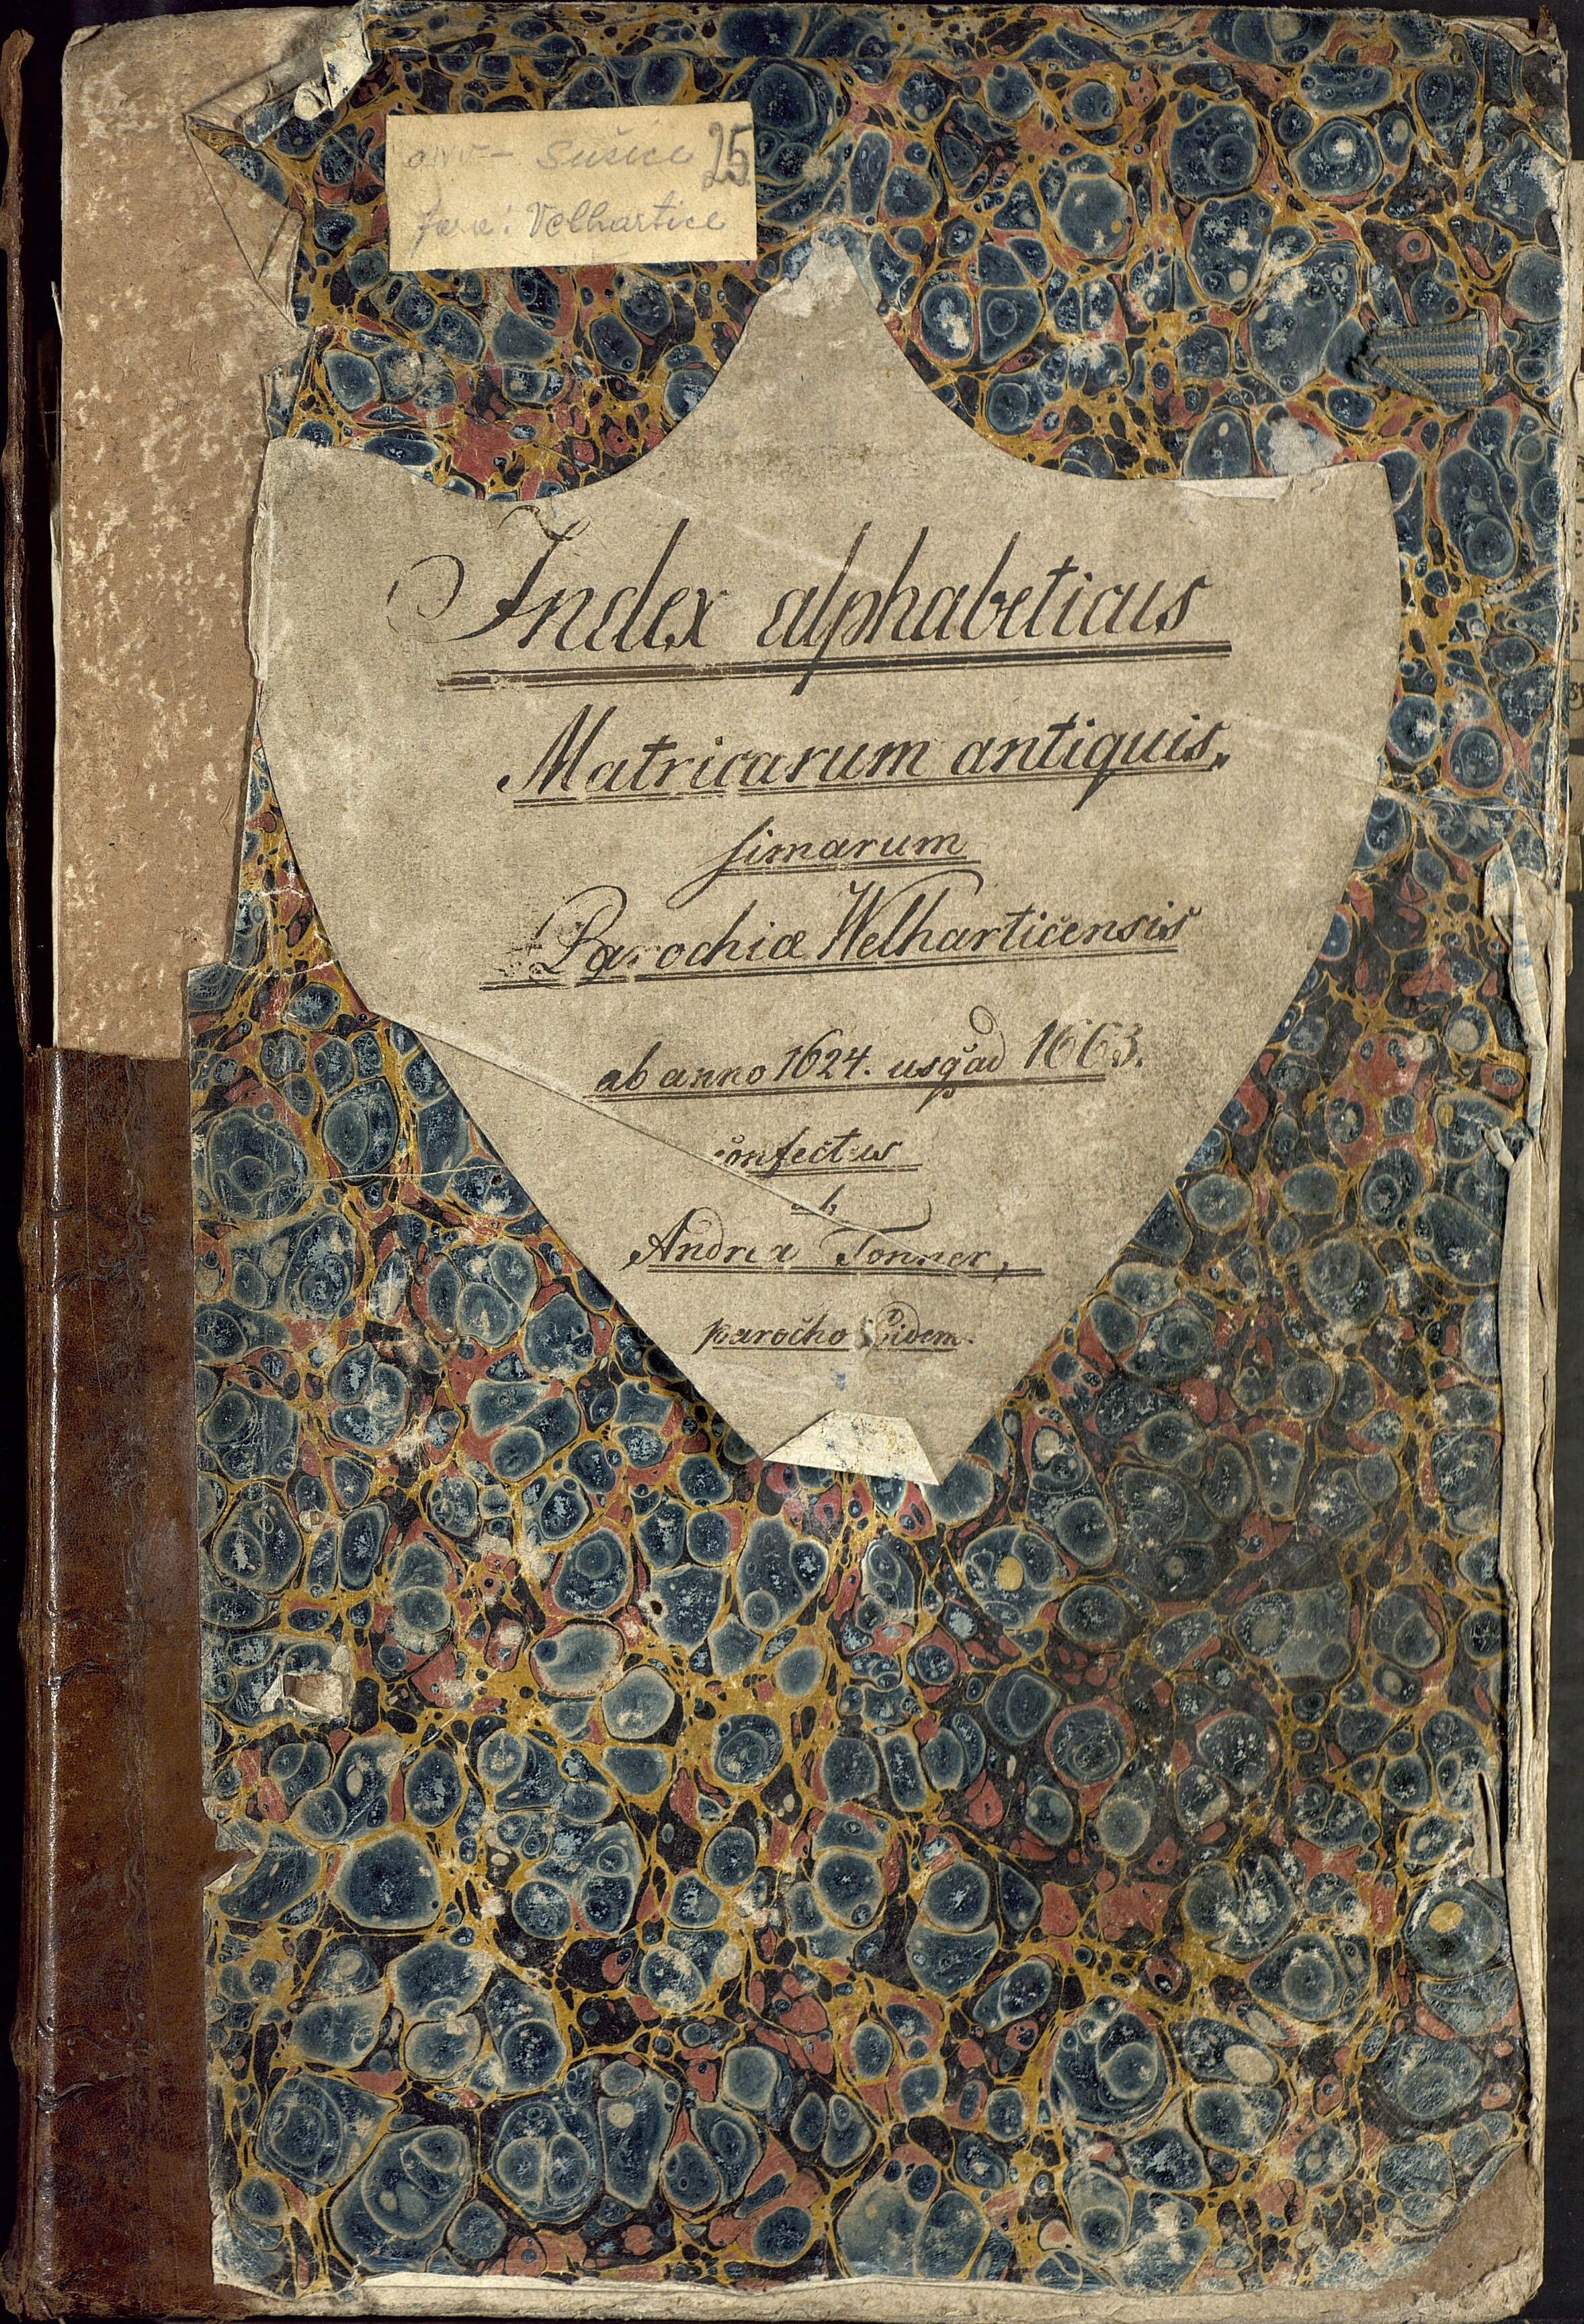 Sušice 25
fara: Velhartice
Index alphabeticus
Matricarum antiquis„
simarum
Parochiæ Welharticensis
ab anno 1624. usq̃ ad 1663.
confectus
ab
Andrea Tonner,
parocho ibidem.